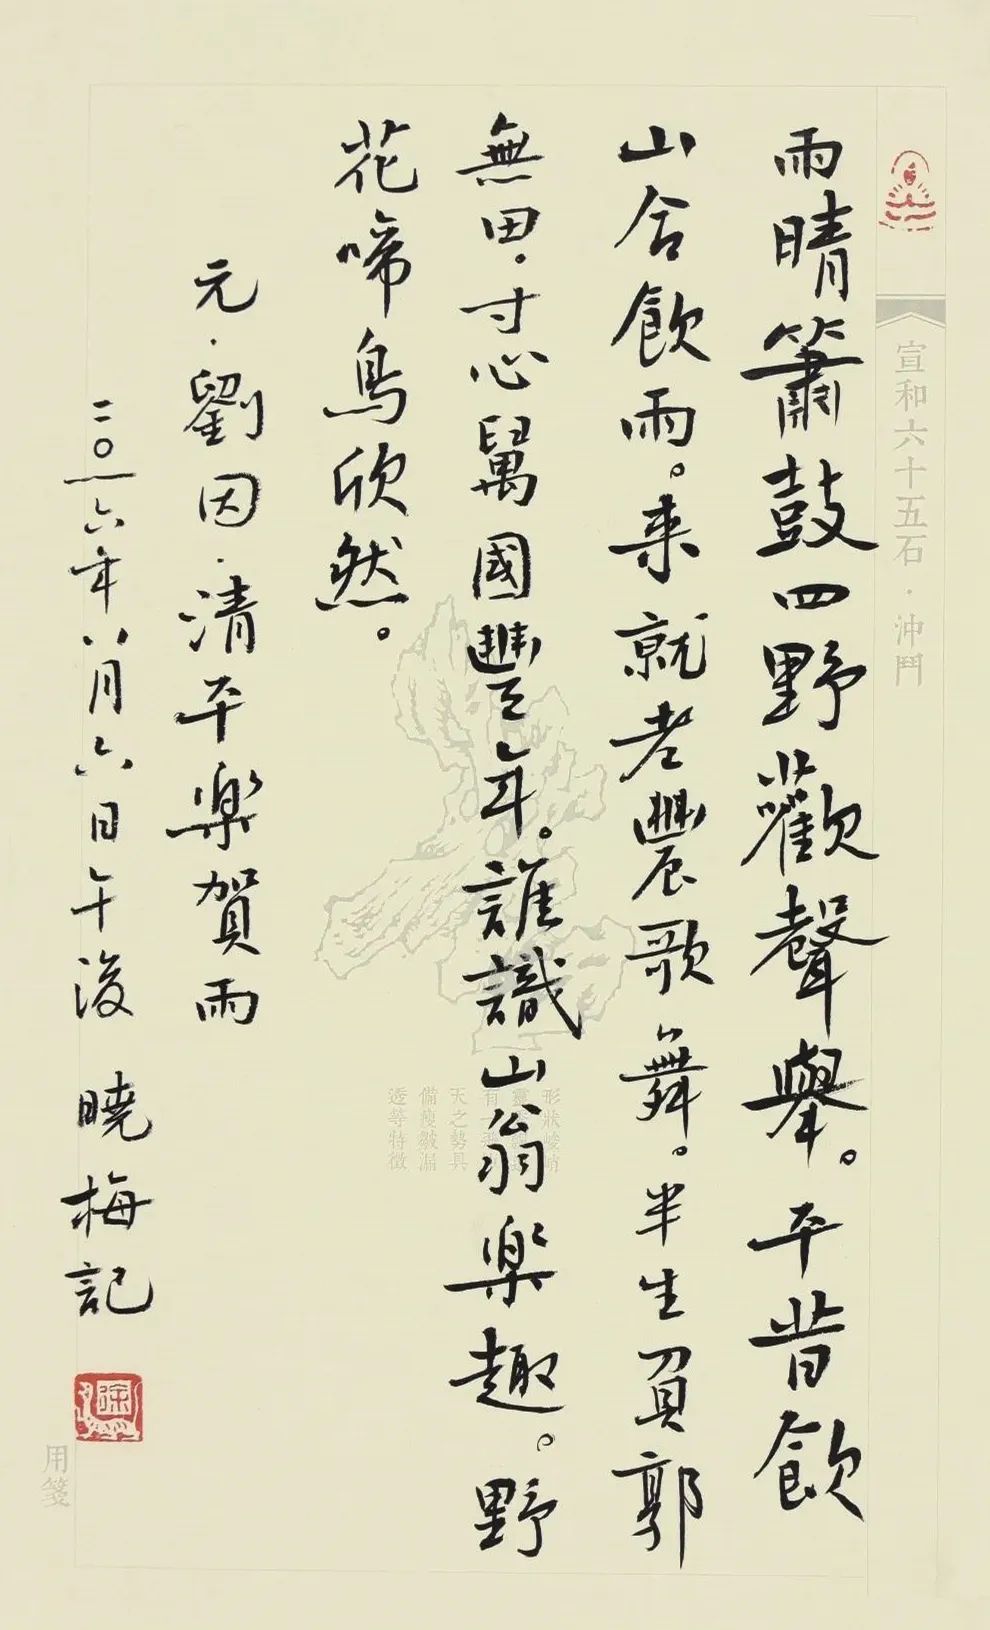 宣和六十五石·沖鬥
雨晴簫鼓四野歡聲舉。平昔飲
山今飲雨。来就老農歌舞。半生負郭
無田。寸心萬國豐年。誰識山翁樂趣。野
花啼鳥欣然。
元·劉因·清平樂賀雨
二〇一六年八月六日午後 曉梅記
天之勢具
備瘦皴漏
透等特徵
用箋